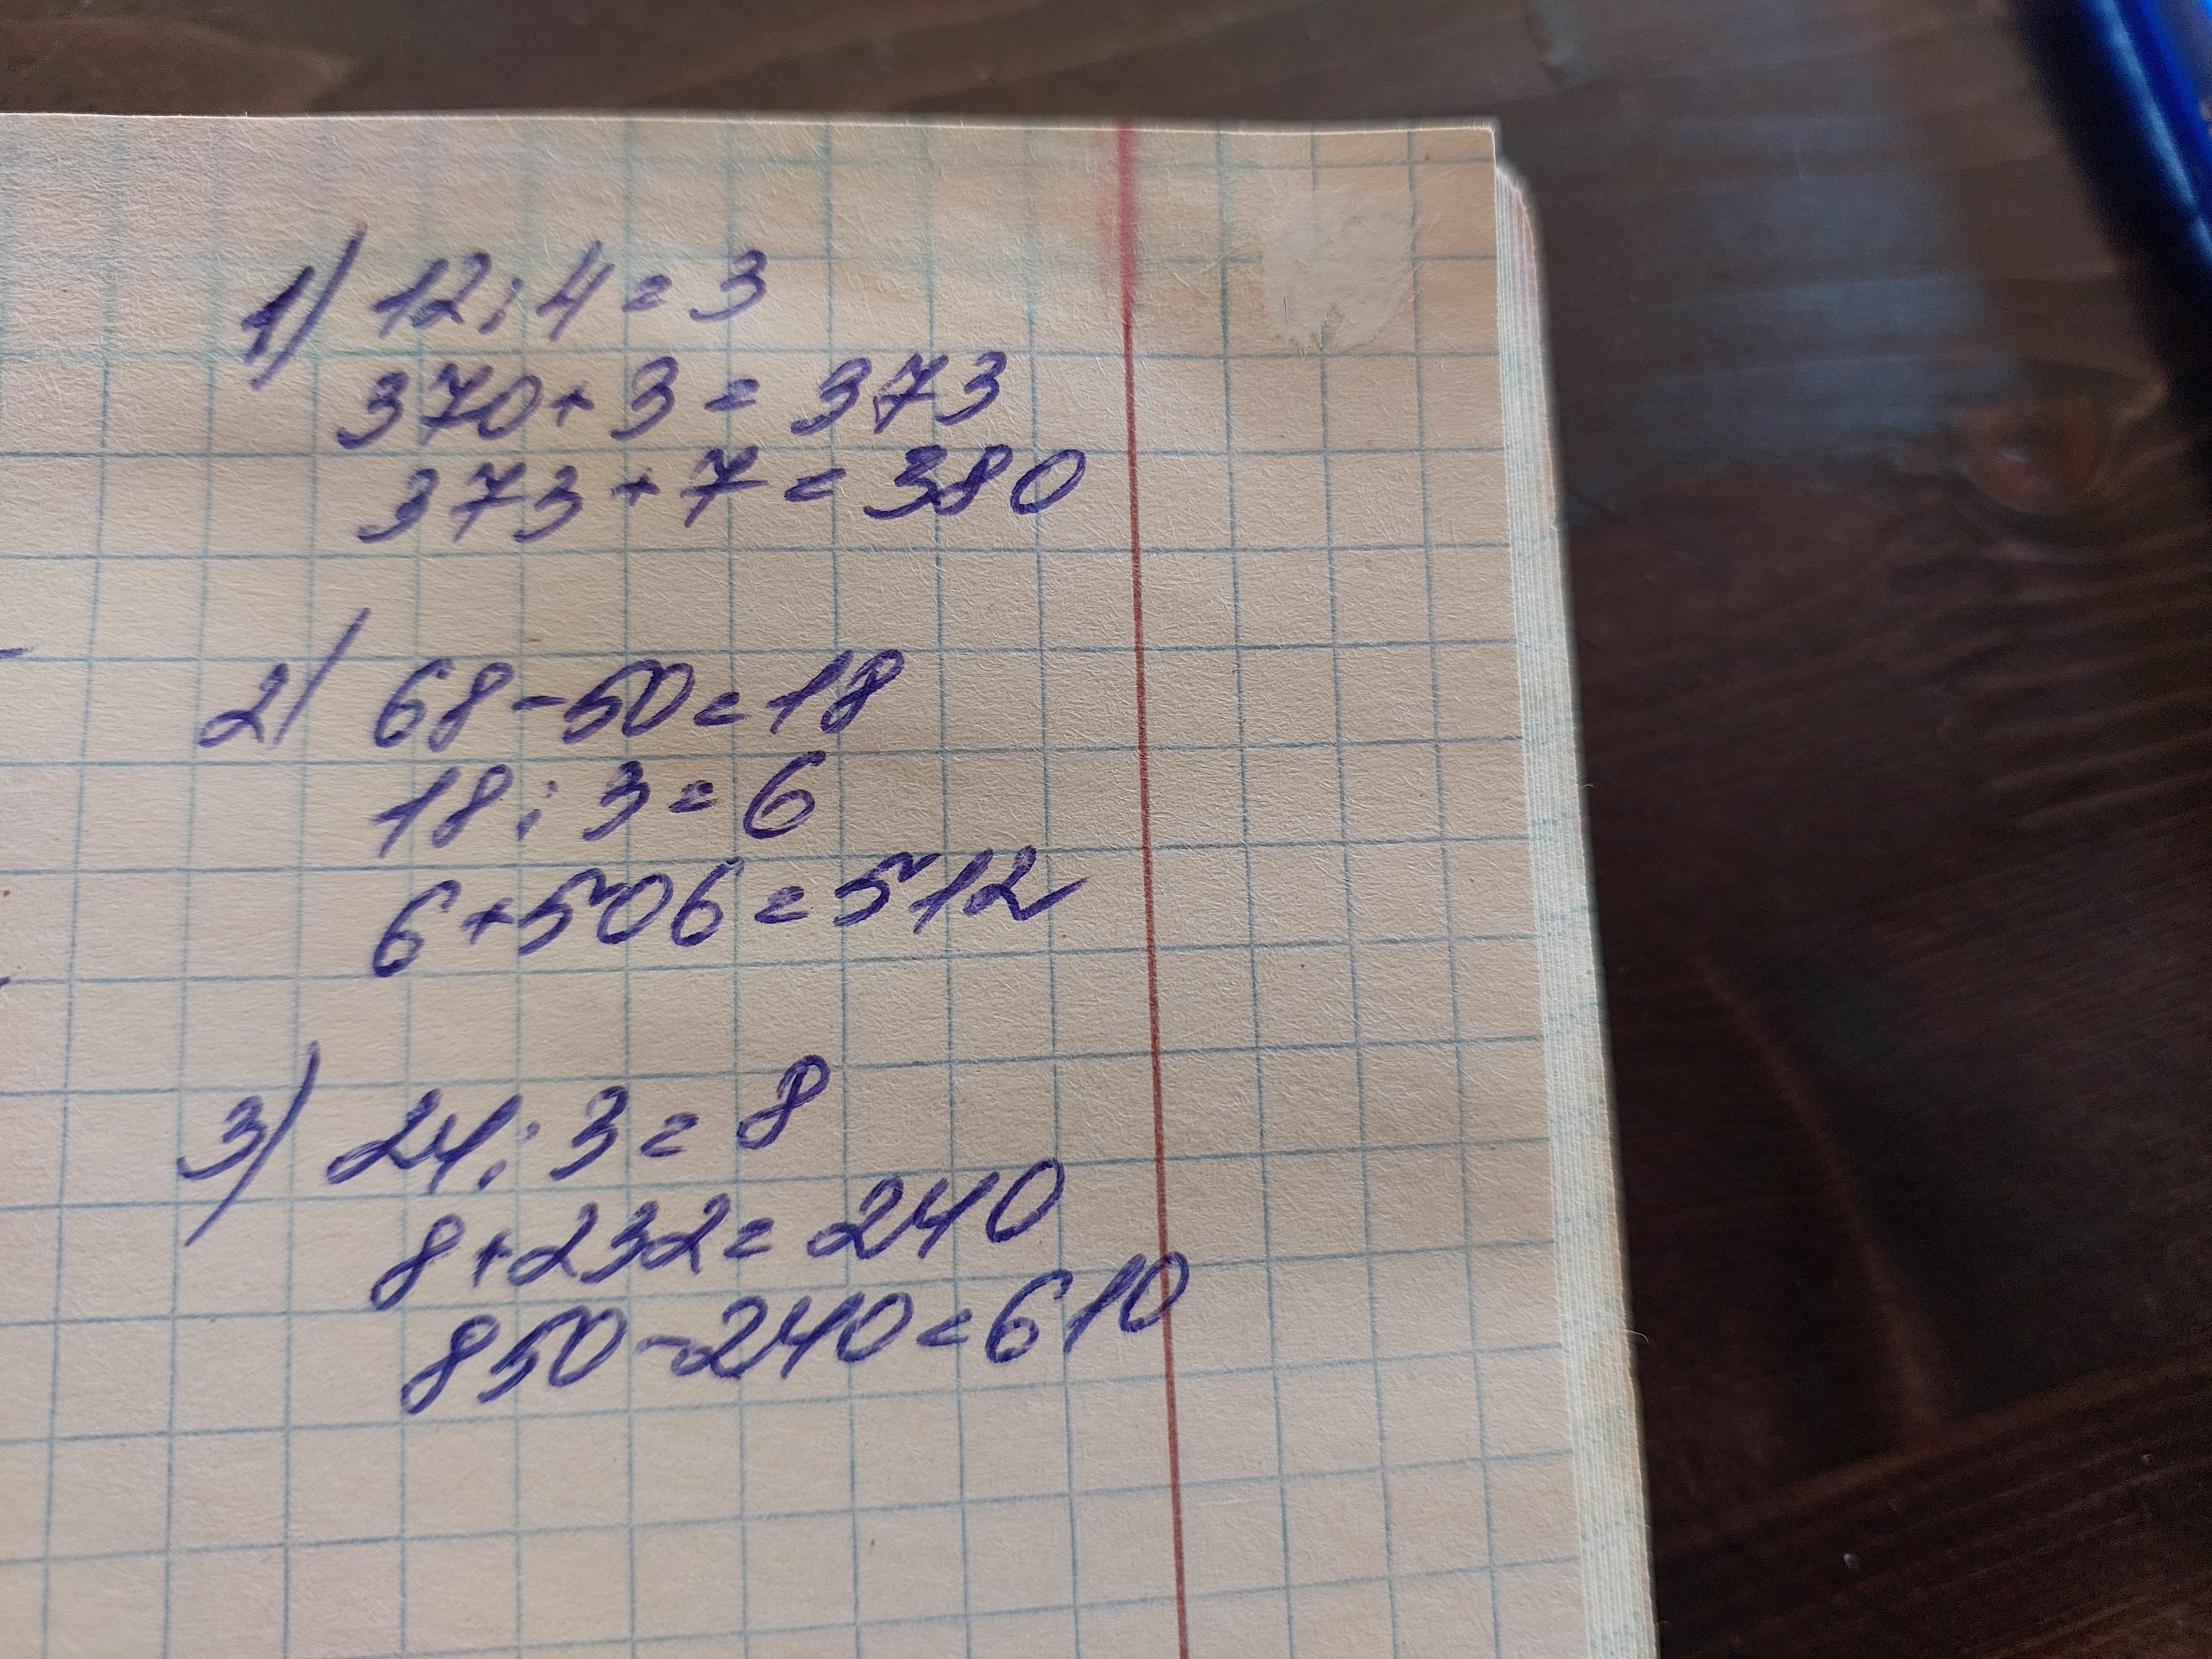 1) 12:4=3
370+3=373
373+7=380
2) 68-50=18
18:3=6
6+506=512
3) 24:3=8
8+232=240
850-240=610